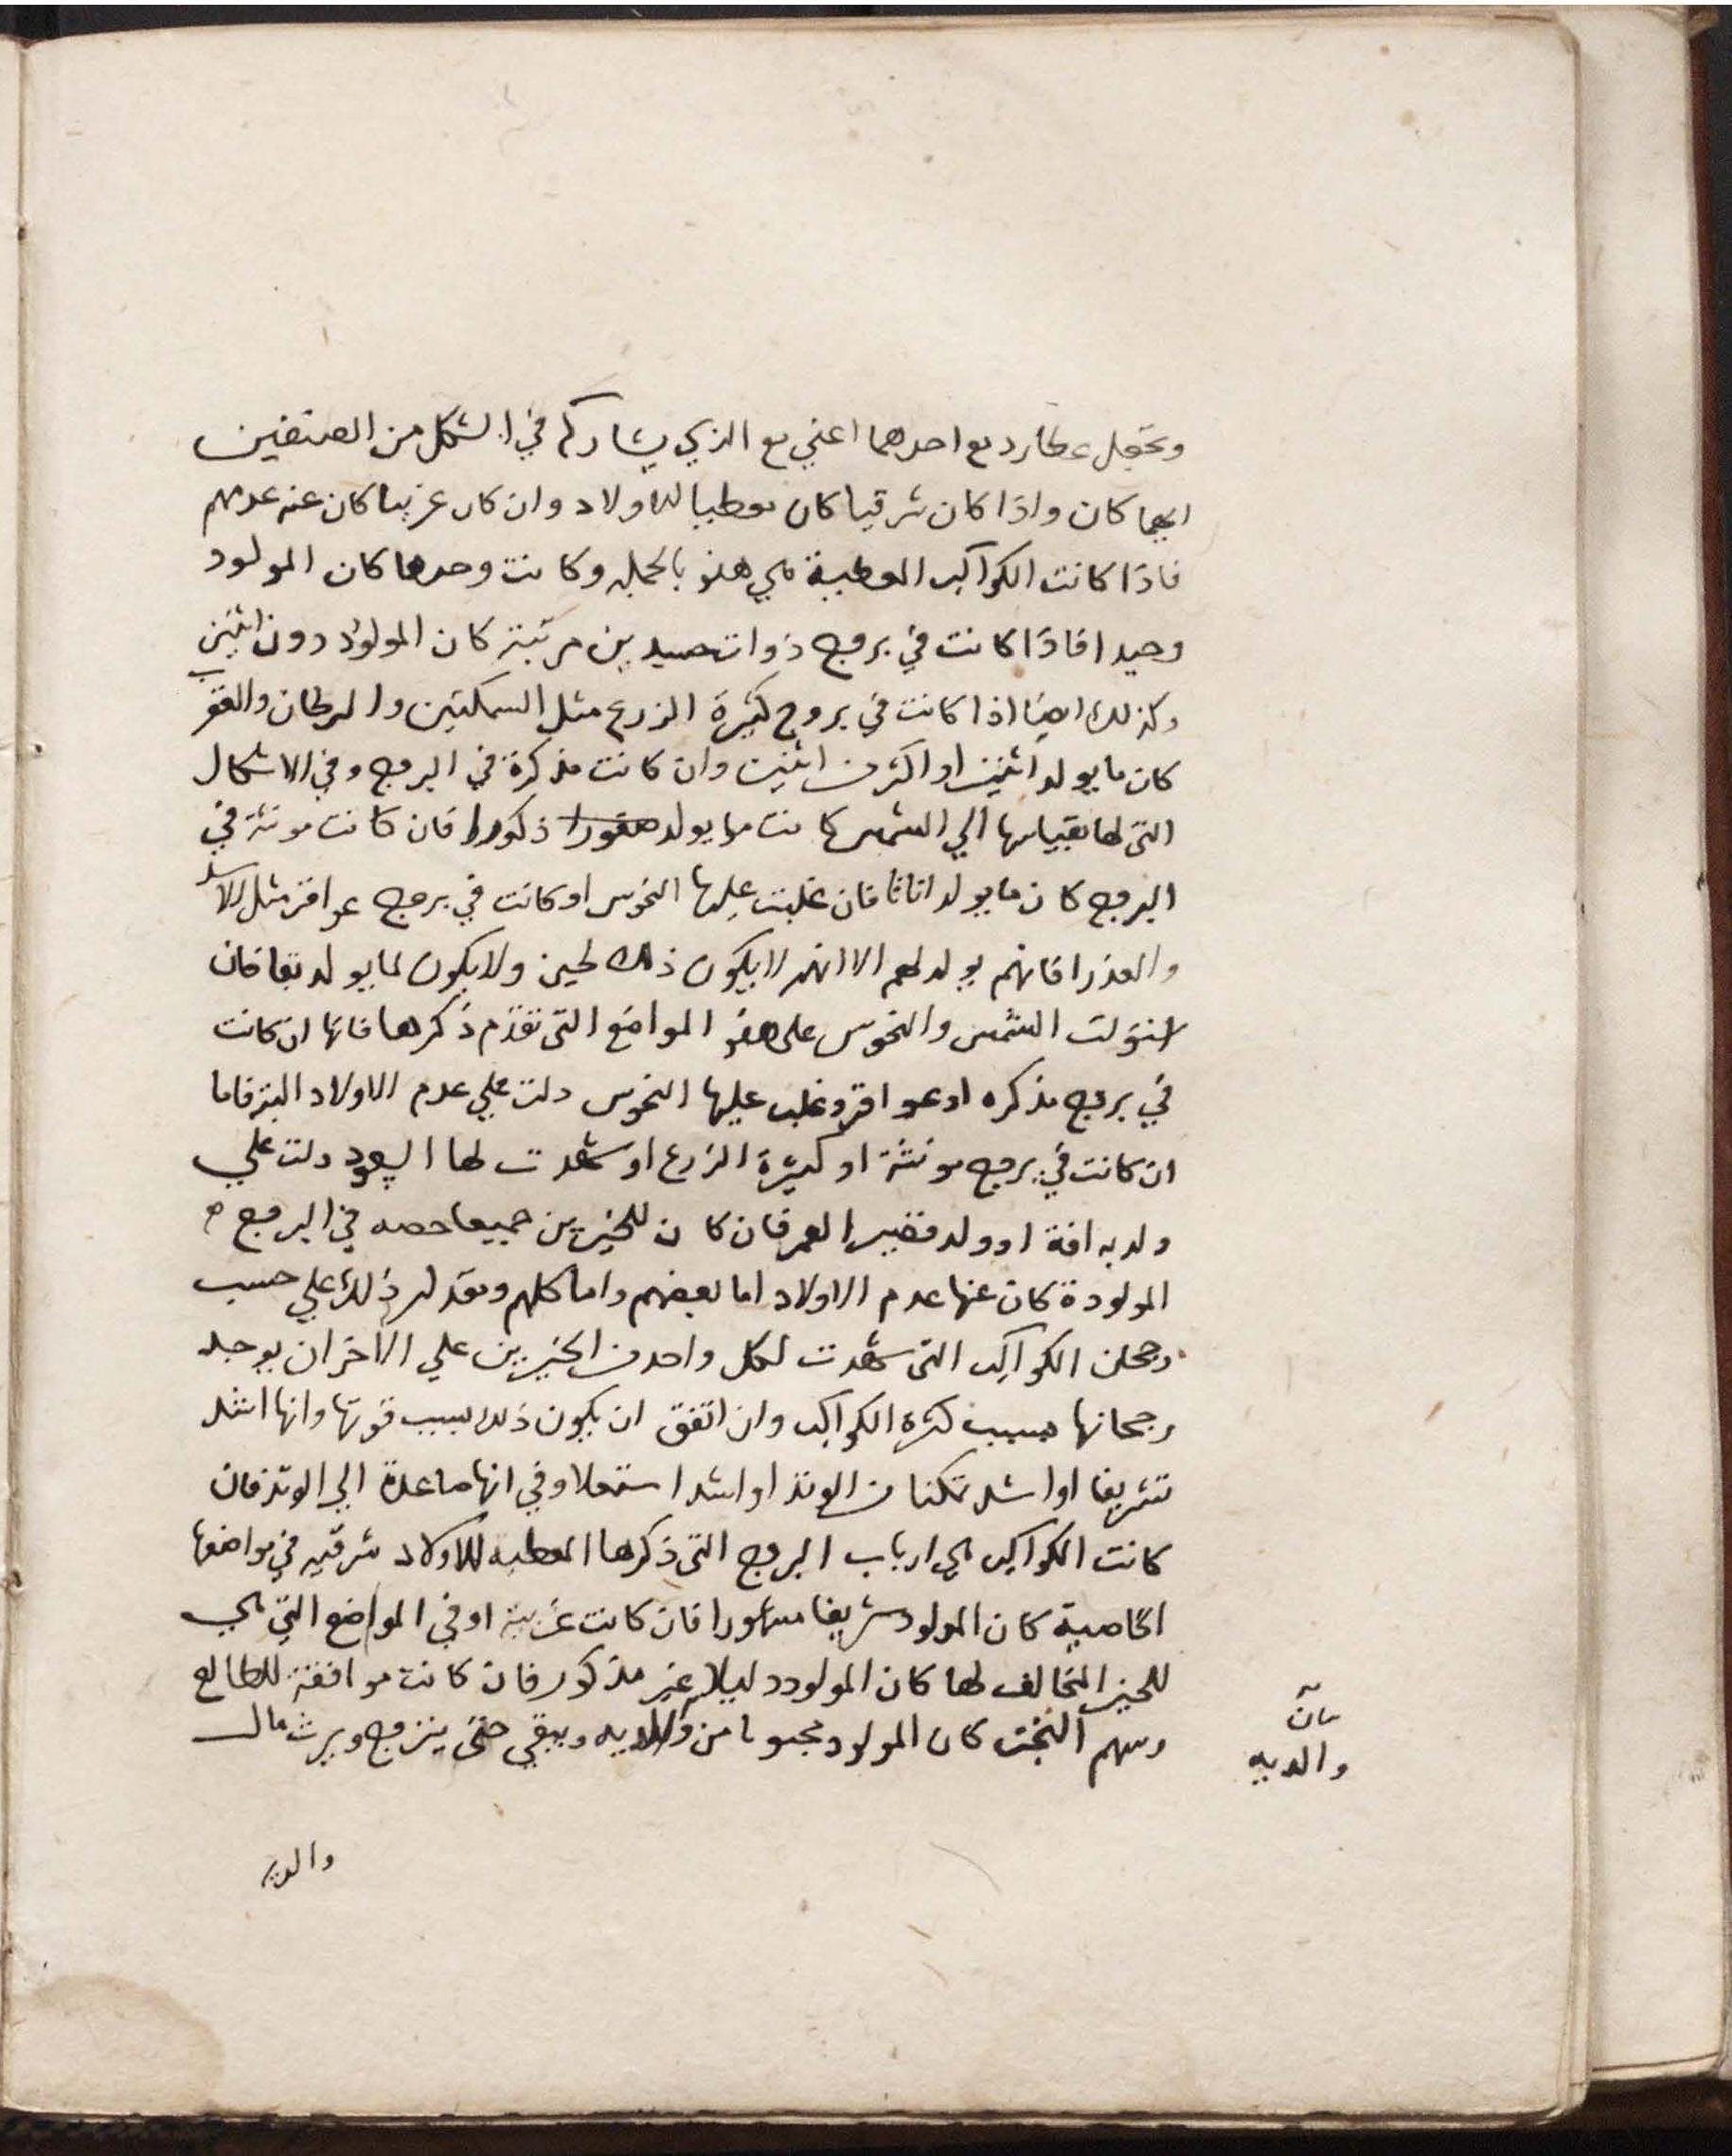 ونجعل عطارد مع احدهما اعني مع الذي يشاركه في الشكل من الصنفين
ايهما كان واذا كان شرقيا كان معطيا للاولاد وان كان غربيا كان عنه عدمهم
فاذا كانت الكواكب المعطية هي هذه بالجمله وكانت وحدها كان المولود
وحيدا فاذا كانت في بروج ذوات جسدين مرئية كان المولود دون اثنين
وكذلك ايضا اذا كانت في بروج كثيرة الزرع مثل السمكتين والسرطان والعقرب
كان ما يولد اثنين او اكثر من اثنين وان كانت مذكرة في البروج وفي الاشكال
التي لها بقياسها الي الشمس كانت ما يولد ذكورا فان كانت مونثة في
البروج كان ما يولد اناثا فان غلبت عليها النحوس او كانت في بروج عواقر مثل الاسد
والعذرا فانهم يولد لهم الا انه لا يكون ذلك لحين ولا يكون لما يولد بقا فان
استولت الشمس والنحوس على هذه المواضع التي تقدم ذكرها فانها ان كانت
في بروج مذكره او عواقر وغلب عليها النحوس دلت علي عدم الاولاد البته فاما
ان كانت في بروج مونثة او كثيرة الزرع او شهدت لها السعود دلت علي
ولد به افة او ولد قصير العمر فان كان للحيزين جميعا حصه في البروج
المولودة كان عنها عدم الاولاد اما بعضهم واما كلهم ويعدلهم ذلك علي حسب
رجحان الكواكب التي شهدت لكل واحد من الحيزين علي الاخر ان يوجد
رجحانها بسبب كثرة الكواكب وان اتفق ان يكون ذلك بسبب قوتها وانها اشد
تشريقا او اشد تمكنا من الوتد او اشد استعلا وفي انها صاعدة الي الوتد فان
كانت الكواكب هي ارباب البروج التي ذكرها المعطيه للاولاد شرقيه في مواضعها
الخاصية كان المولود شريفا مشهورا فان كانت غربية او في المواضع التي هي
للحيز المخالف لها كان المولود دليلا غير مذكور فان كانت موافقة للطالع
وسهم البخت كان المولود محبوبا من والديه ويبقي حتى يتزوج ويرث مال
والديه
والديه